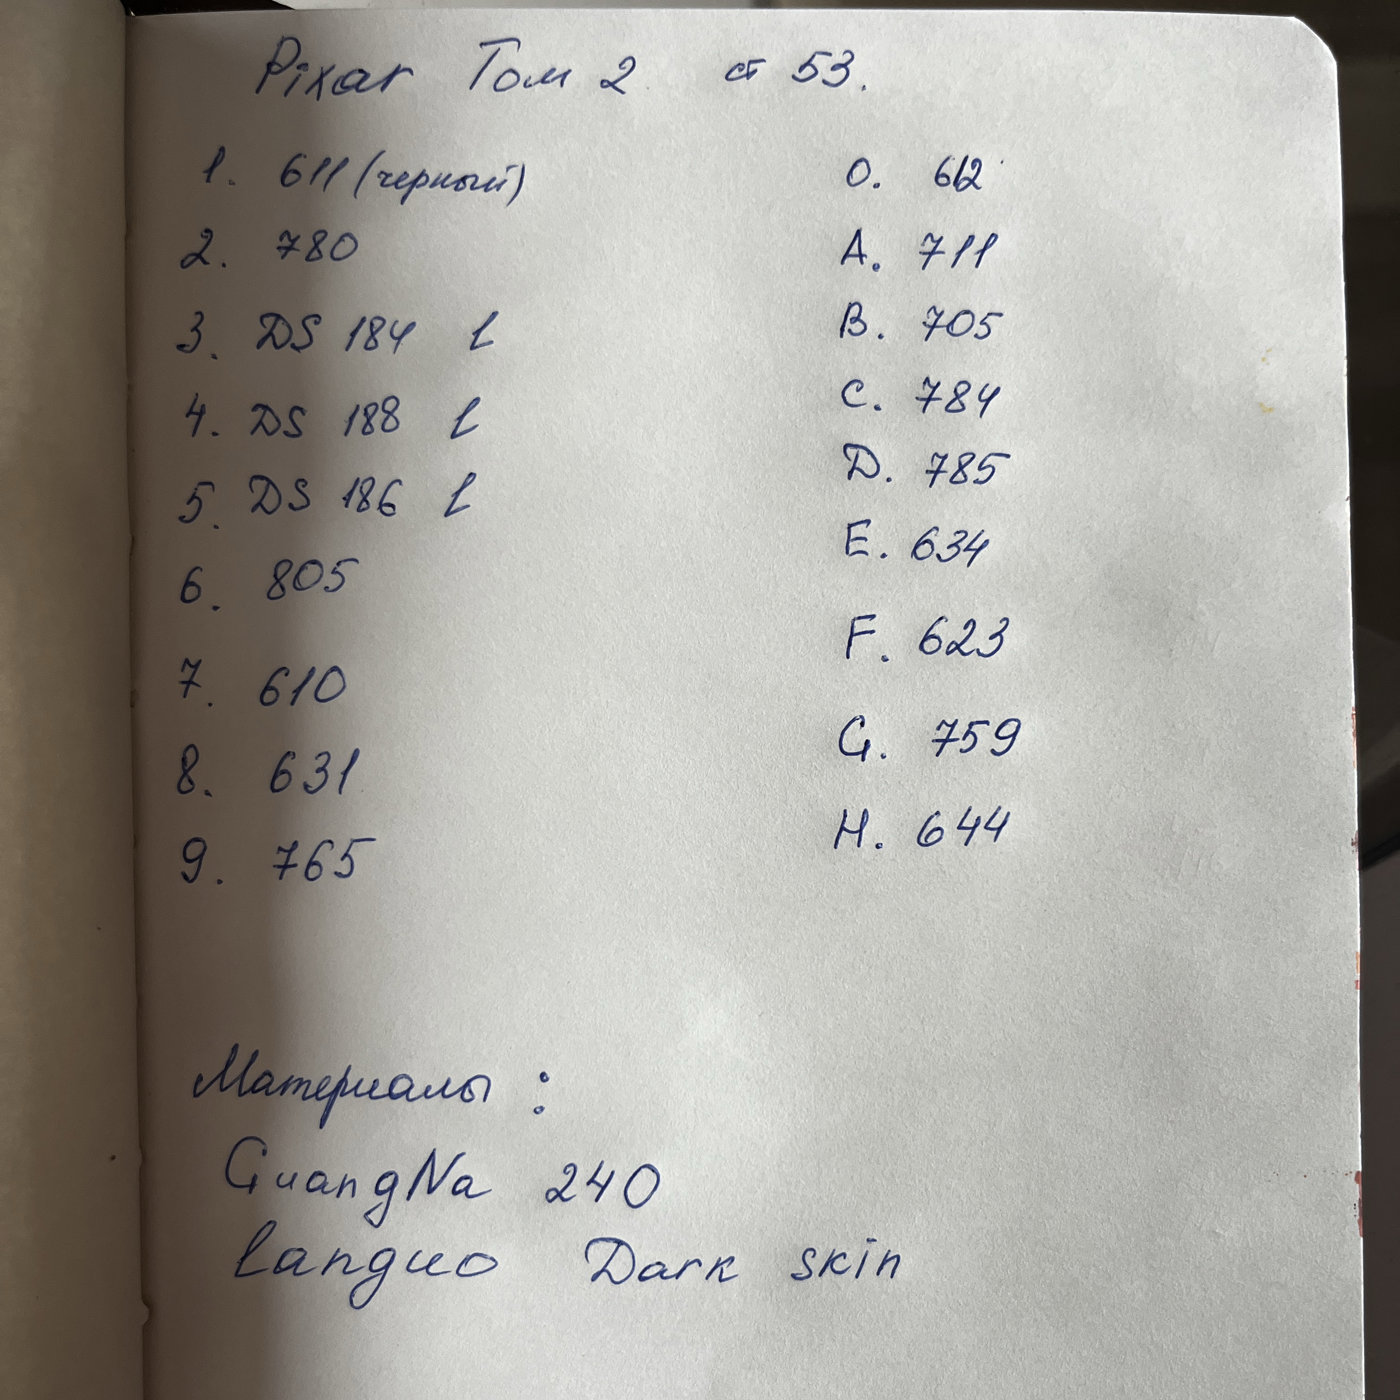 Pixar Том 2 ст 53.
1. 611 (черный)
2. 780
3. DS 184 L
4. DS 188 L
5. DS 186 L
6. 805
7. 610
8. 631
9. 765
O. 612
A. 711
B. 705
C. 784
D. 785
E. 634
F. 623
G. 759
H. 644
Материалы :
GuangNa 240
Languo Dark skin